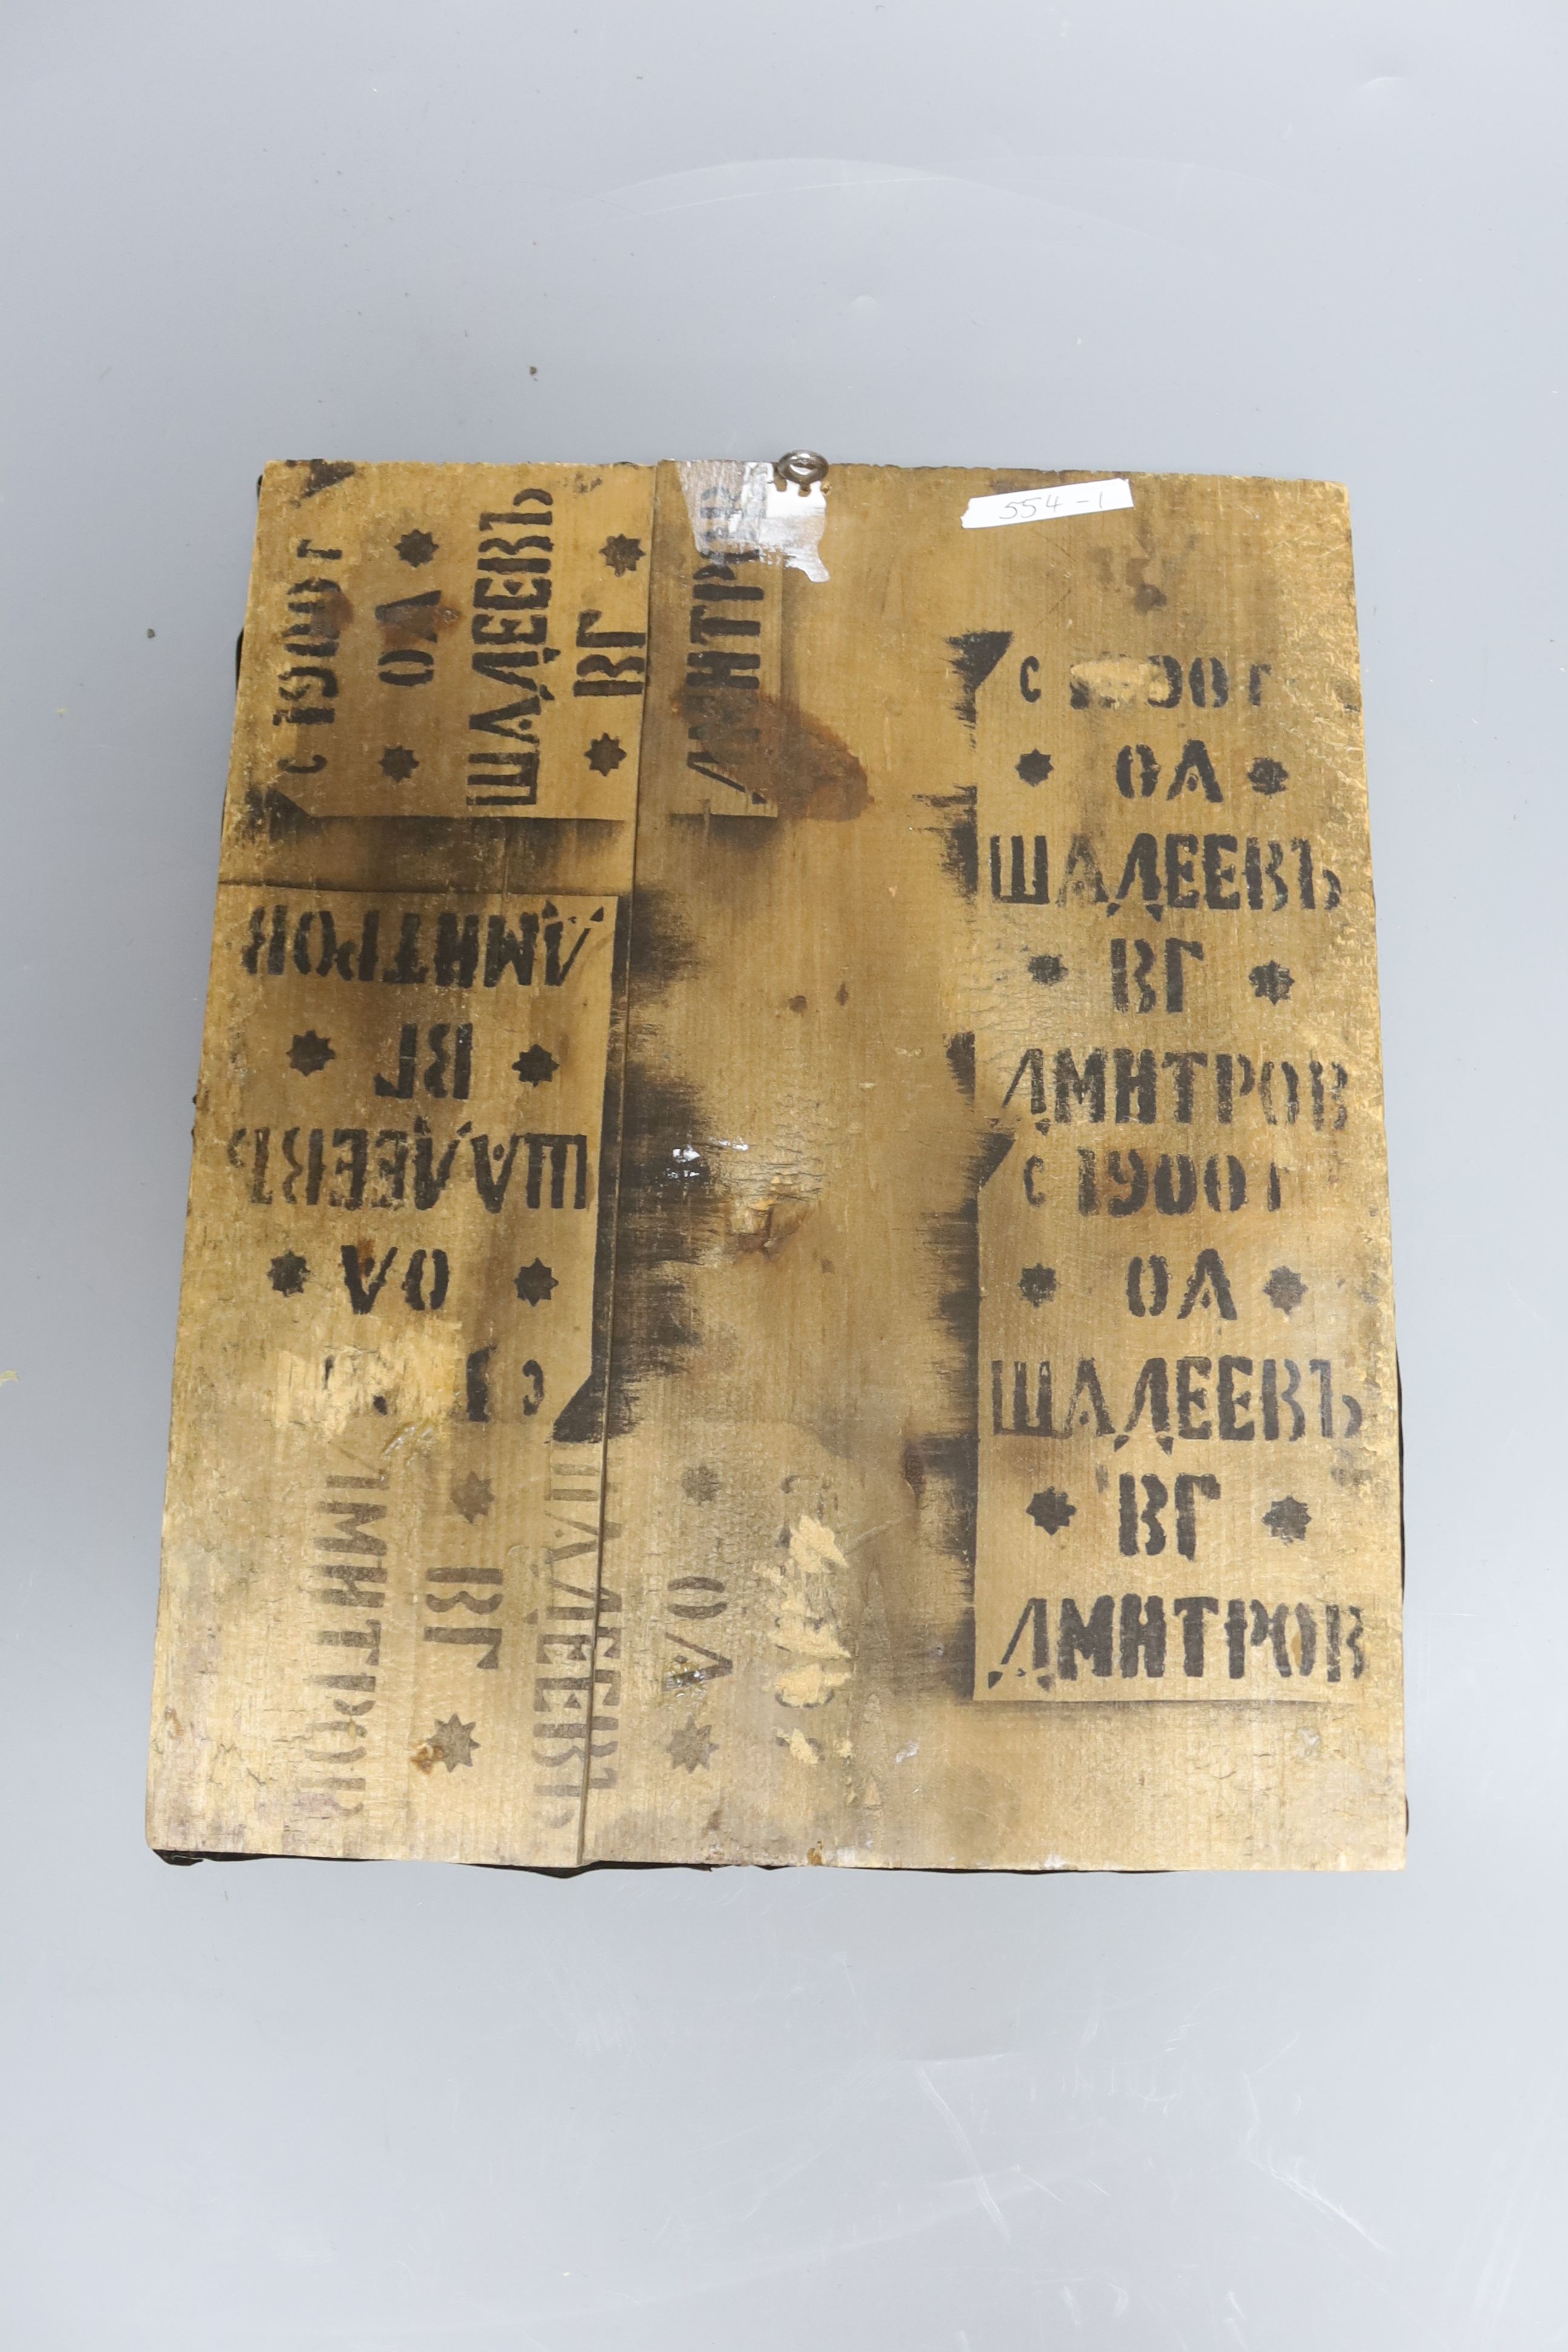 554-1
С 1900 Г
ОА
ШАДЕЕВЪ
ВГ
ДМИТРОВ
С 1900 Г
ОА
ШАДЕЕВЪ
ВГ
ДМИТРОВ
С 1900 Г
ОА
ШАДЕЕВЪ
ВГ
ДМИТРОВ
ДМИТРОВ
ВГ
ШАДЕЕВЪ
ОА
С 1
ДМИТРОВ
ВГ
ШАДЕЕВЪ
ОА